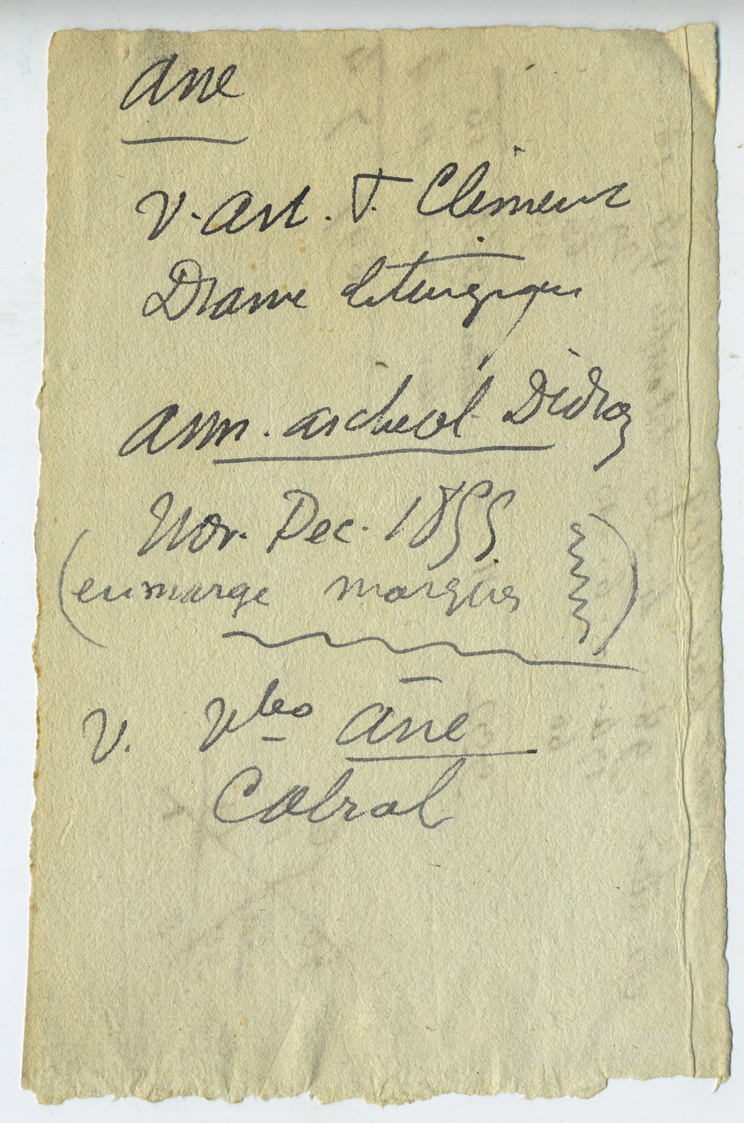 ane
V. art. F. Clément
Drame liturgique
Ann. archeol Didron
Nov. Dec. 1855
(en marge marqués )
V. vbo âne
Cabrol